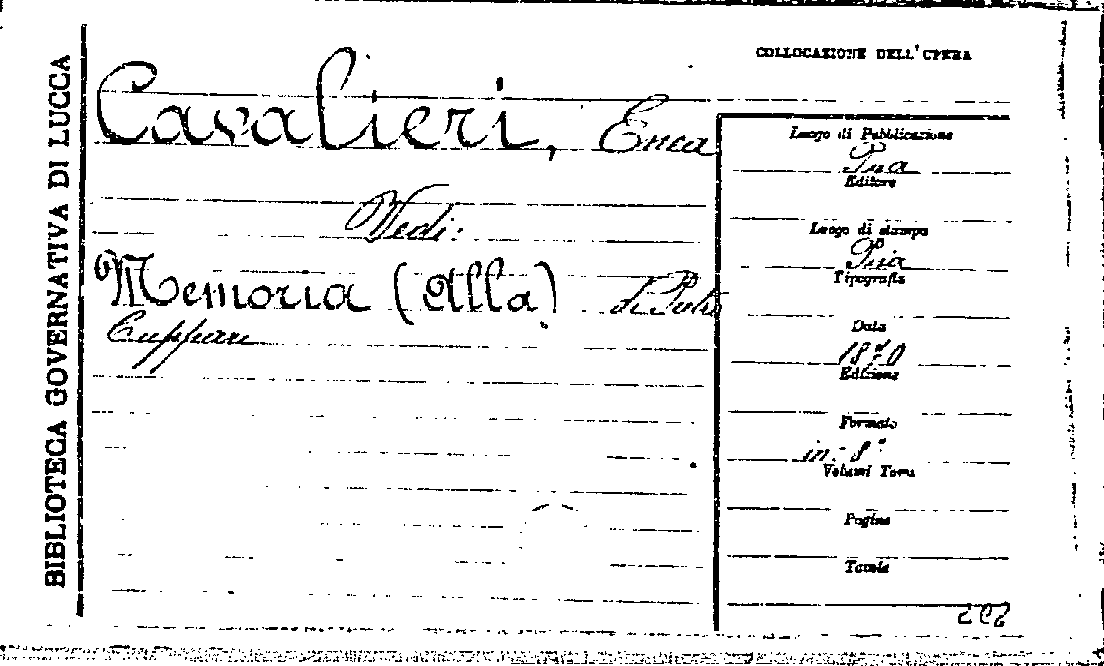 BIBLIOTECA GOVERNATIVA DI LUCCA
COLLOCAZIONE DELL'OPERA
Cavalieri, Enea
Vedi:
Memoria (Alla) di Pietro
Cuppari
Luogo di Pubblicazione
Pisa
Editore
Luogo di stampa
Pisa
Tipografia
Data
1870
Edizione
Formato
in-8°
Volumi Tomi
Pagine
Tavole